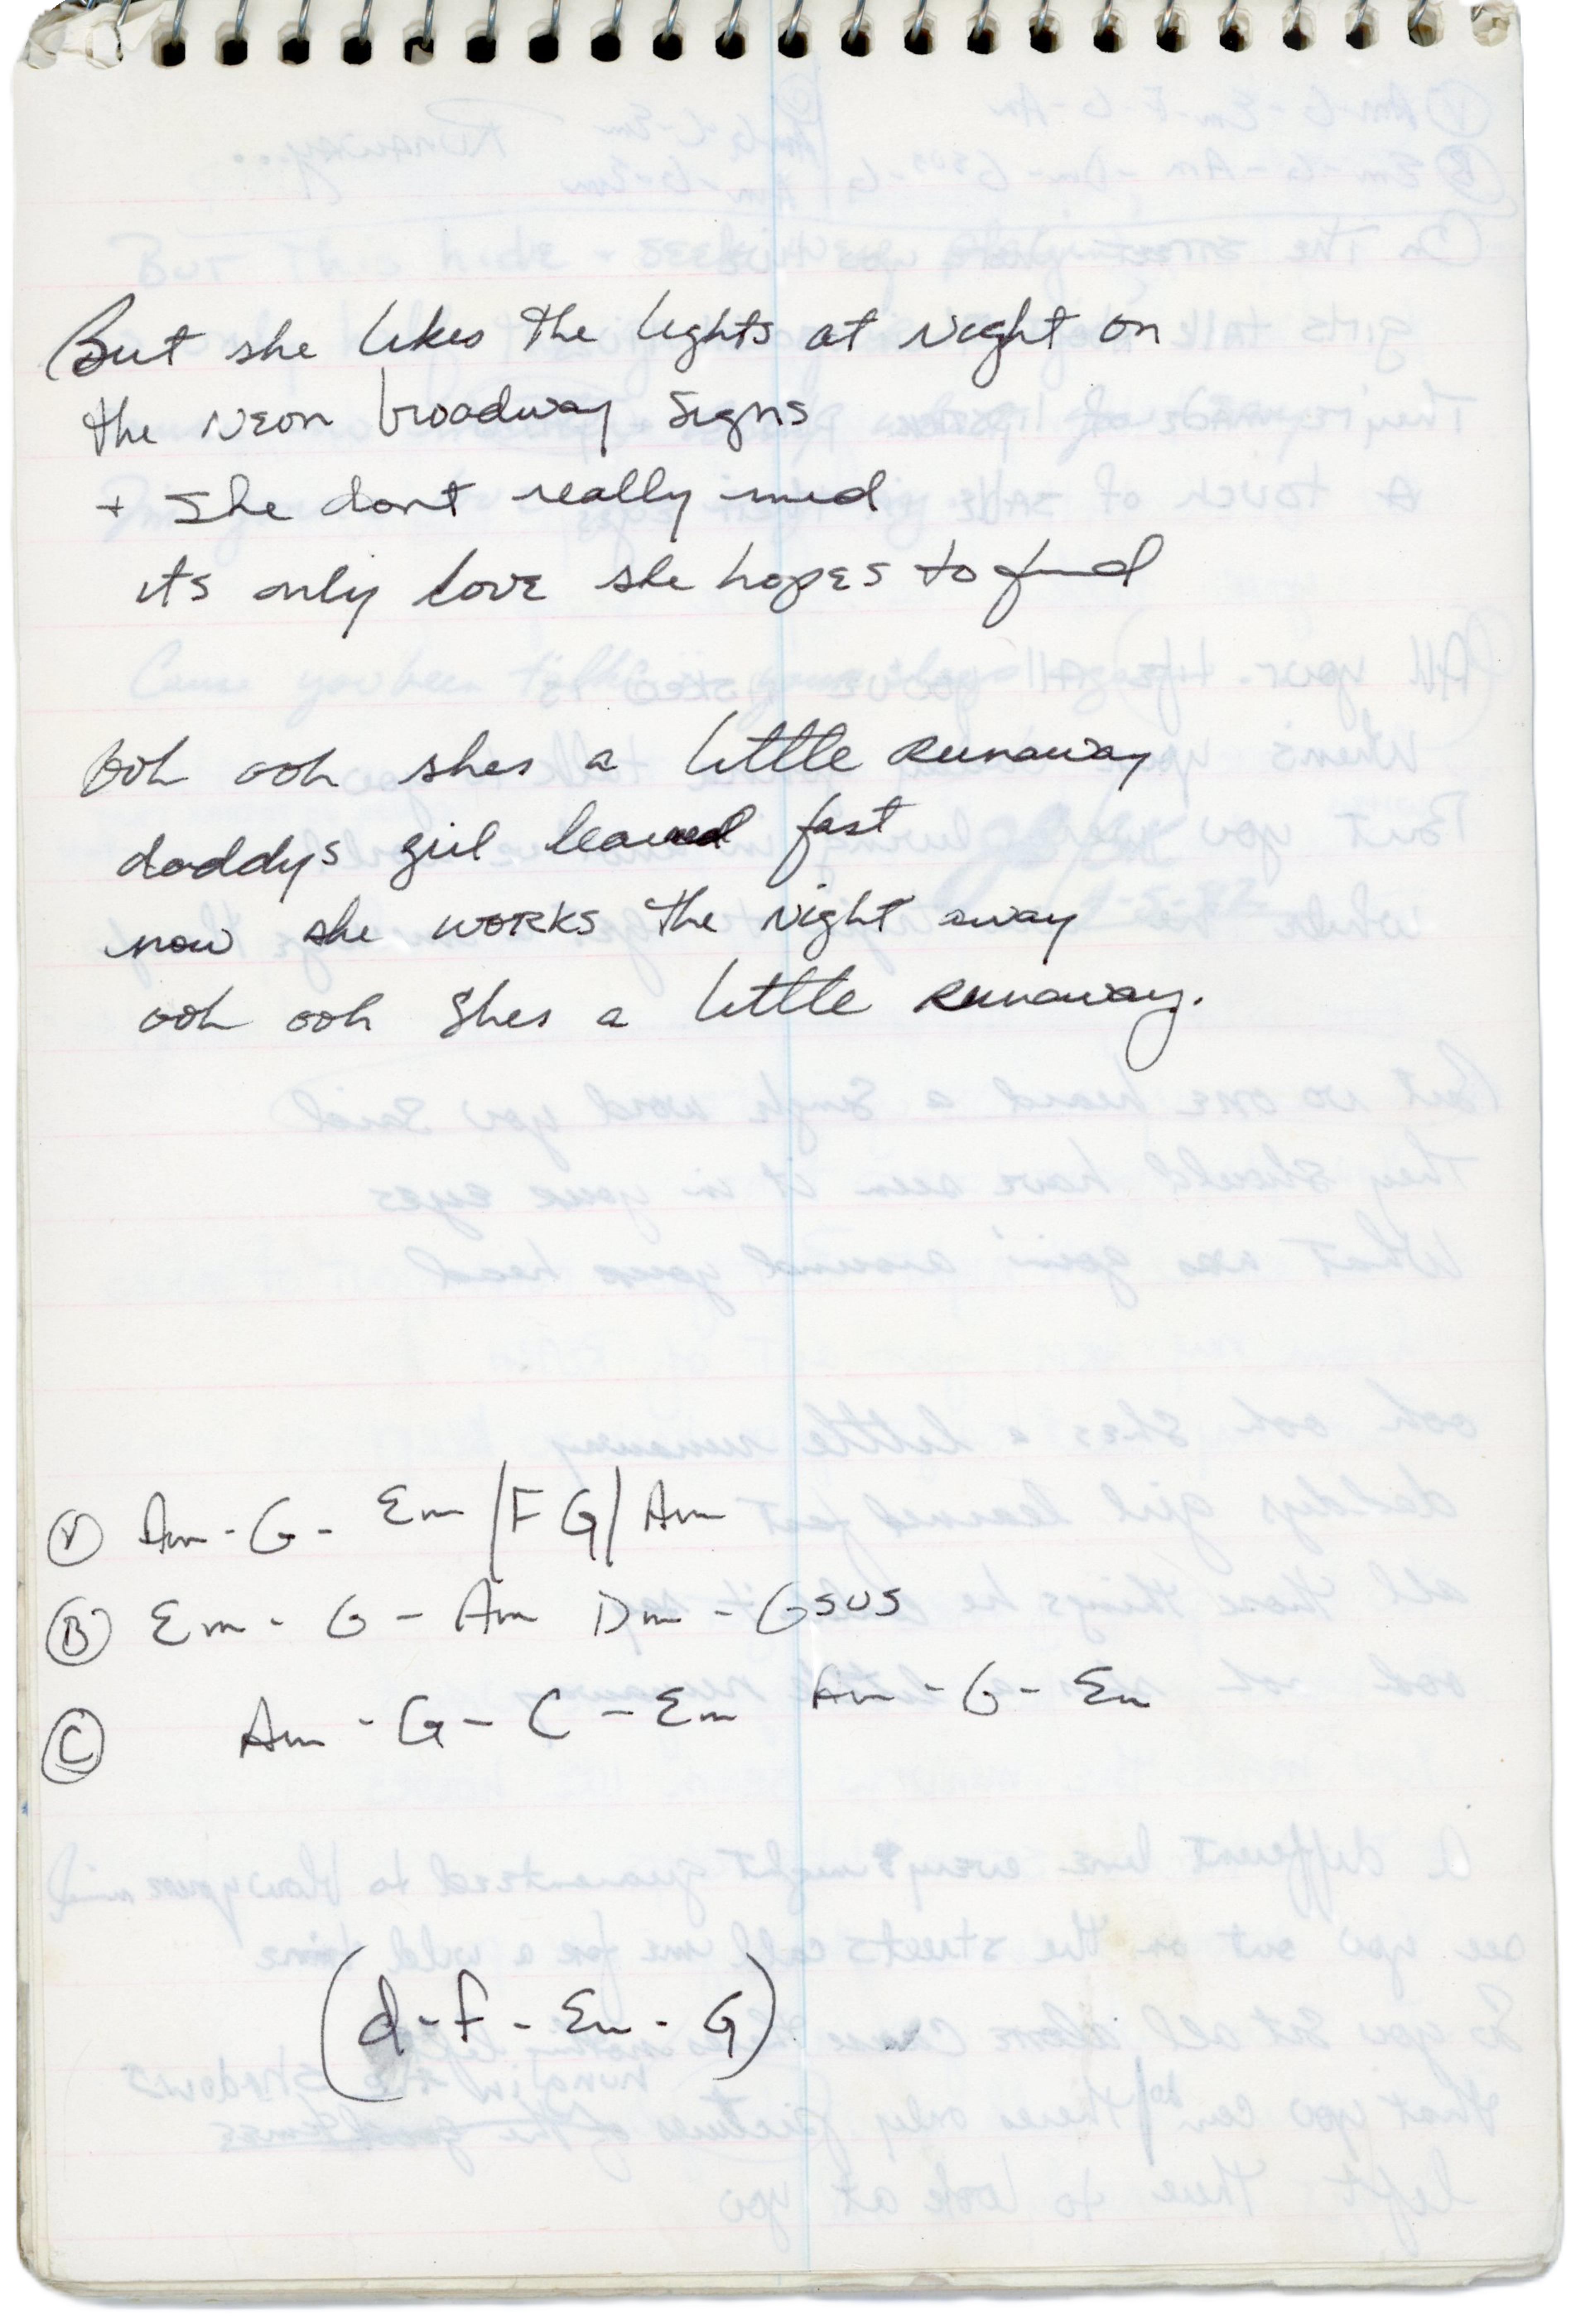 But she likes the lights at night on
the neon broadway signs
+ she dont really mind
its only love she hopes to find
ooh ooh shes a little Runaway
daddys girl learned fast
now she works the night away
ooh ooh shes a little Runaway.
Ⓥ Am - G - Em / F G / Am
Ⓑ Em - G - Am Dm - Gsus
Ⓒ Am - G - C - Em Am - G - Em
(d - f - Em - G)